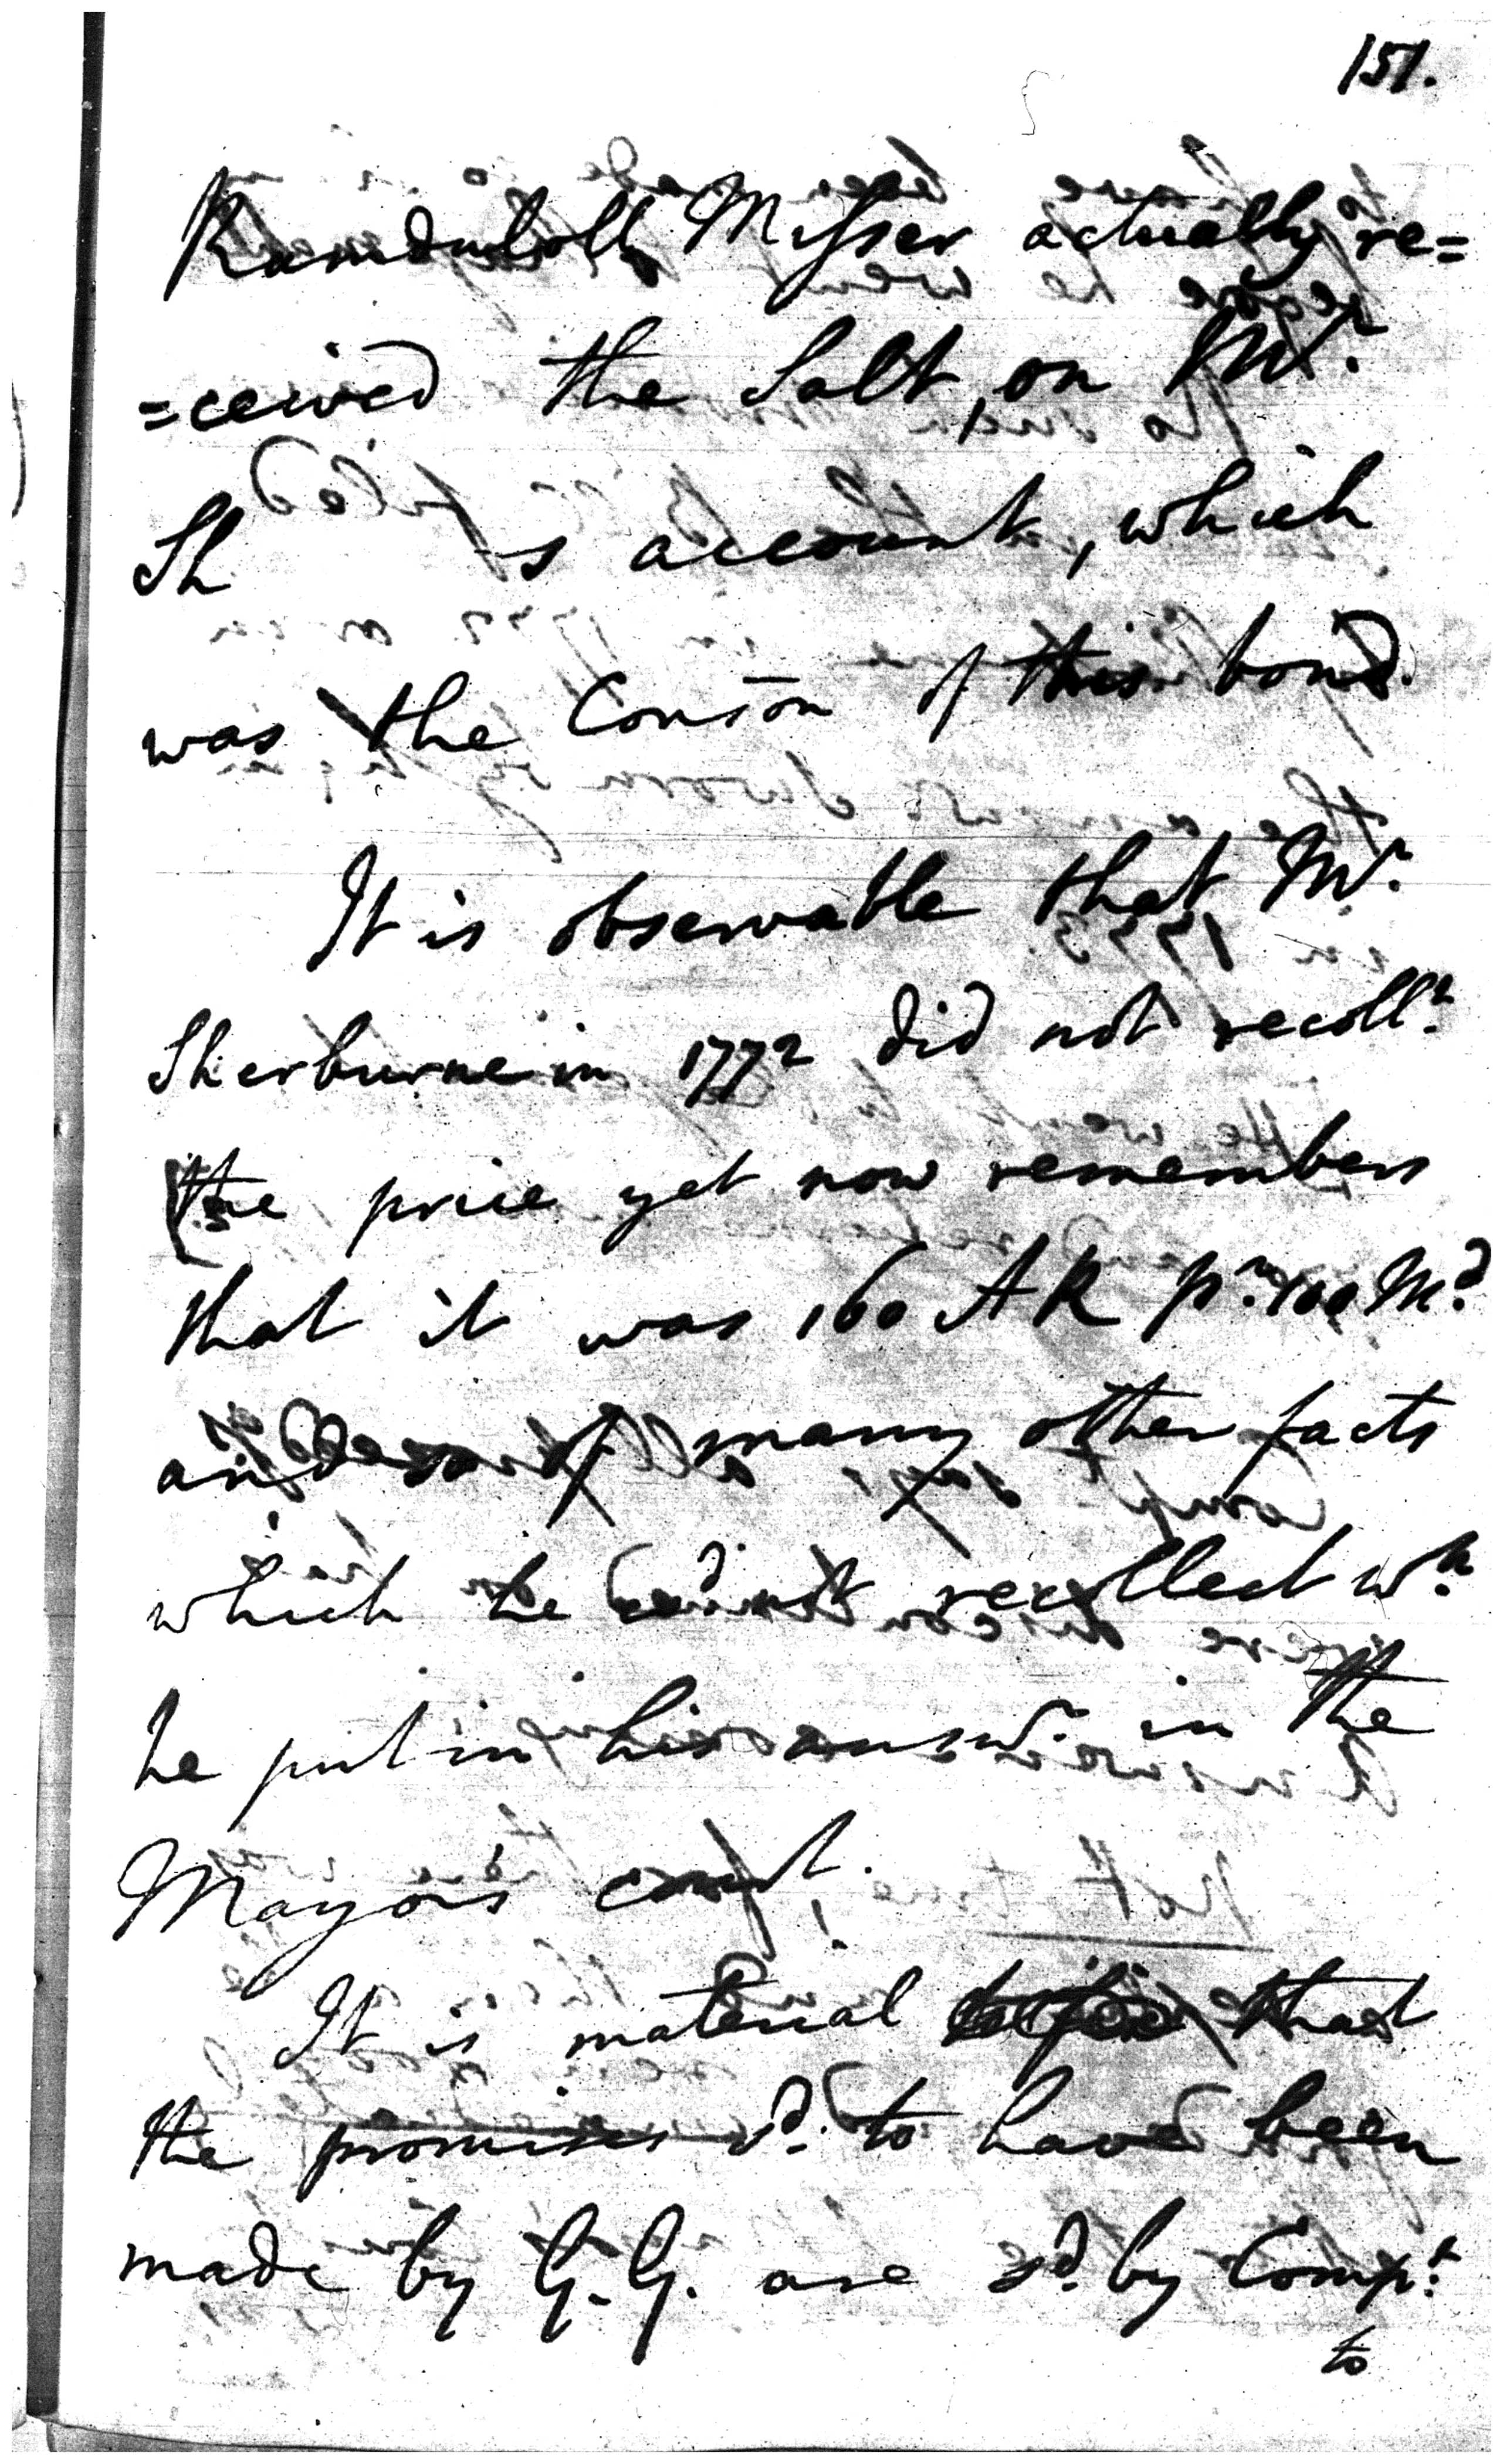 151.
Ramdulolb Misser actually re=
=ceived the Salt, on Mr.
Sh s account, which
was the Conson of this bond.
It is observable that Mr.
Sherburne in 1772 did not recollt.
the price yet now remembers
that it was 160 AR pr. 100 Md.
and of many other facts
which he cod. not recollect wn.
he put in his answr. in the
Mayors court.
It is material that
the promises sd. to have been
made by G. G. are sd. by Compt.
to